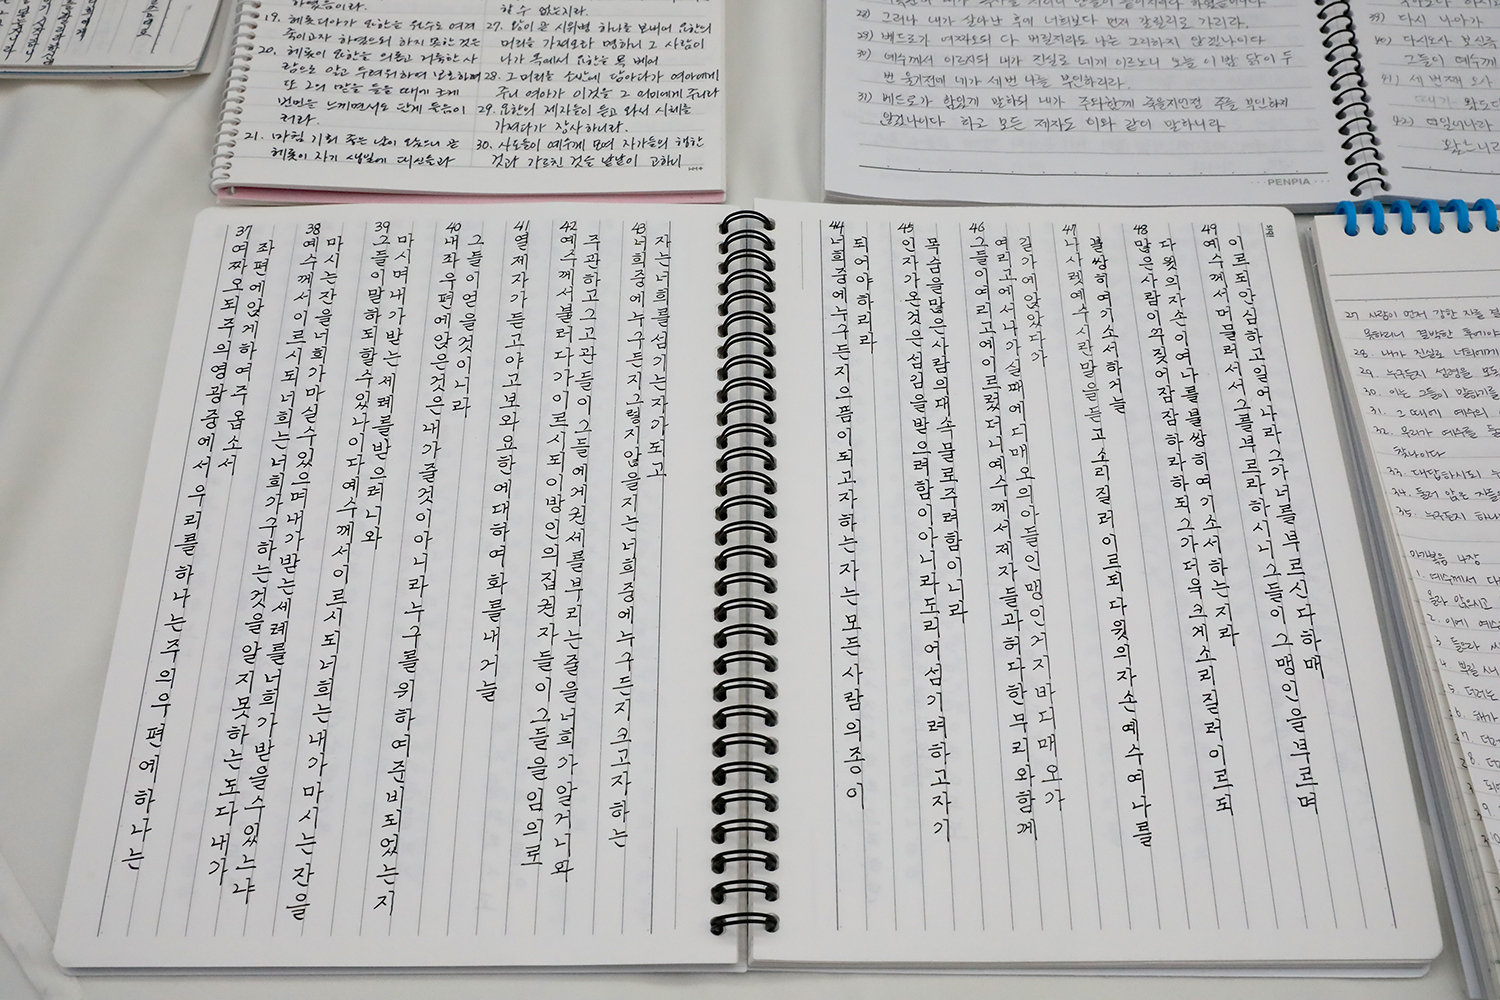 19. 헤로디아가 요한을 원수로 여겨
죽이고자 하였으되 하지 못한 것은
20. 헤롯이 요한을 의롭고 거룩한 사
람으로 알고 두려워하여 보호하며
또 그의 말을 들을 때에 크게
번민을 느끼면서도 달게 들음이
러라.
21. 마침 기회 좋은 날이 왔으니 곧
헤롯이 자기 생일에 대신들과
할 수 없는지라.
27. 왕이 곧 시위병 하나를 보내어 요한의
머리를 가져오라 명하니 그 사람이
나가 옥에서 요한을 목 베어
28. 그 머리를 소반에 담아다가 여아에게
주니 여아가 이것을 그 어미에게 주니라
29. 요한의 제자들이 듣고 와서 시체를
가져다가 장사하니라.
30. 사도들이 예수께 모여 자기들의 행한
것과 가르친 것을 낱낱이 고하니
28) 그러나 내가 살아난 후에 너희보다 먼저 갈릴리로 가리라.
29) 베드로가 여짜오되 다 버릴지라도 나는 그리하지 않겠나이다
30) 예수께서 이르시되 내가 진실로 네게 이르노니 오늘 이 밤 닭이 두
번 울기전에 네가 세 번 나를 부인하리라.
31) 베드로가 힘있게 말하되 내가 주와함께 죽을지언정 주를 부인하지
않겠나이다 하고 모든 제자도 이와 같이 말하니라
PENPIA
39) 다시 나아가
40) 다시오사 보신즉
그들이 예수께
41) 세 번째 오사
42) 일어나라
37 여짜오되주의영광중에서우리를하나는주의우편에하나는
좌편에앉게하여주옵소서
38 예수께서이르시되너희는너희가구하는것을알지못하는도다내가
마시는잔을너희가마실수있으며내가받는세례를너희가받을수있느냐
39 그들이말하되할수있나이다예수께서이르시되너희는내가마시는잔을
마시며내가받는세례를받으려니와
40 내좌우편에앉은것은내가줄것이아니라누구를위하여준비되었는지
그들이얻을것이니라
41 열제자가듣고야고보와요한에대하여화를내거늘
42 예수께서불러다가이르시되이방인의집권자들이그들을임의로
주관하고그고관들이그들에게권세를부리는줄을너희가알거니와
43 너희중에누구든지그렇지않을지는너희중에누구든지크고자하는
자는너희를섬기는자가되고
44 너희중에누구든지으뜸이되고자하는자는모든사람의종이
되어야하리라
45 인자가온것은섬김을받으려함이아니라도리어섬기려하고자기
목숨을많은사람의대속물로주려함이니라
46 그들이여리고에이르렀더니예수께서제자들과허다한무리와함께
여리고에서나가실때에디매오의아들인맹인거지바디매오가
길가에앉았다가
47 나사렛예수시란말을듣고소리질러이르되다윗의자손예수여나를
불쌍히여기소서하거늘
48 많은사람이꾸짖어잠잠하라하되그가더욱크게소리질러이르되
다윗의자손이여나를불쌍히여기소서하는지라
49 예수께서머물러서서그를부르라하시니그들이그맹인을부르며
이르되안심하고일어나라그가너를부르신다하매
27 사람이 먼저 강한 자를 결
못하리니 결박한 후에야
28. 내가 진실로 너희에게
29. 누구든지 성령을 모독
30. 이는 그들이 말하기를
31. 그 때에 예수의
32. 무리가 예수를 둘
33. 대답하시되 누
34. 둘러 앉은 자들을
35. 누구든지 하나
마가복음 4장
1. 예수께서 다
올라 앉으시고
2. 이에 예수
3. 들으라 씨